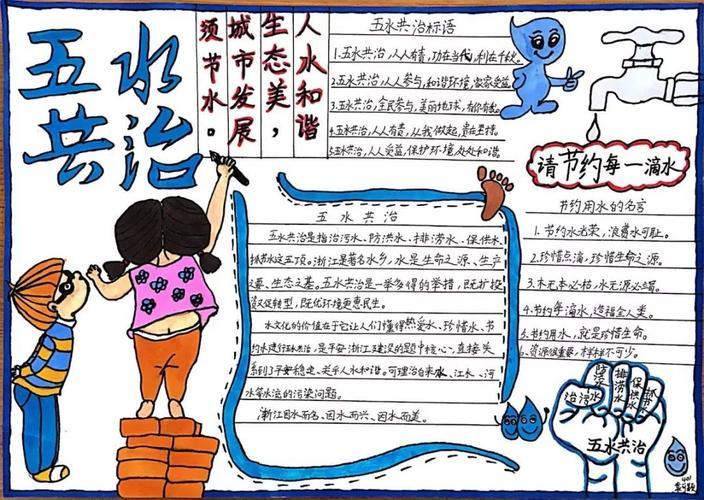 五水
共治
人水和谐
生态美，
城市发展
须节水。
五水共治标语
1.五水共治，人人有责，功在当代，利在千秋。
2.五水共治，人人参与，和谐环境，家家受益。
3.五水共治，全民参与，美丽地球，有你有我。
4.五水共治，人人有责，从我做起，贵在坚持。
5.五水共治，人人受益，保护环境，处处和谐。
请节约每一滴水
五水共治
五水共治是指治污水、防洪水、排涝水、保供水、
抓节水这五项。浙江是著名水乡，水是生命之源、生产
之要、生态之基。五水共治是一举多得的举措，既扩投
资又促转型，既优环境更惠民生。
水文化的价值在于它让人们懂得热爱水、珍惜水、节
约水进行环水共治，是平安浙江建设的题中核心，直接关
系到了平安稳定、关乎人水和谐。可理治自来水、江水、河
水等水流的污染问题。
浙江因水而名、因水而兴、因水而美。
节约用水的名言
1.节约水光荣，浪费水可耻。
2.珍惜点滴，珍惜生命之源。
3.木无本必枯，水无源必竭。
4.节约每滴水，造福全人类。
5.节约用水，就是珍惜生命。
6.资源很重要，样样不可少。
治污水
防洪水
排涝水
保供水
抓节水
五水共治
401